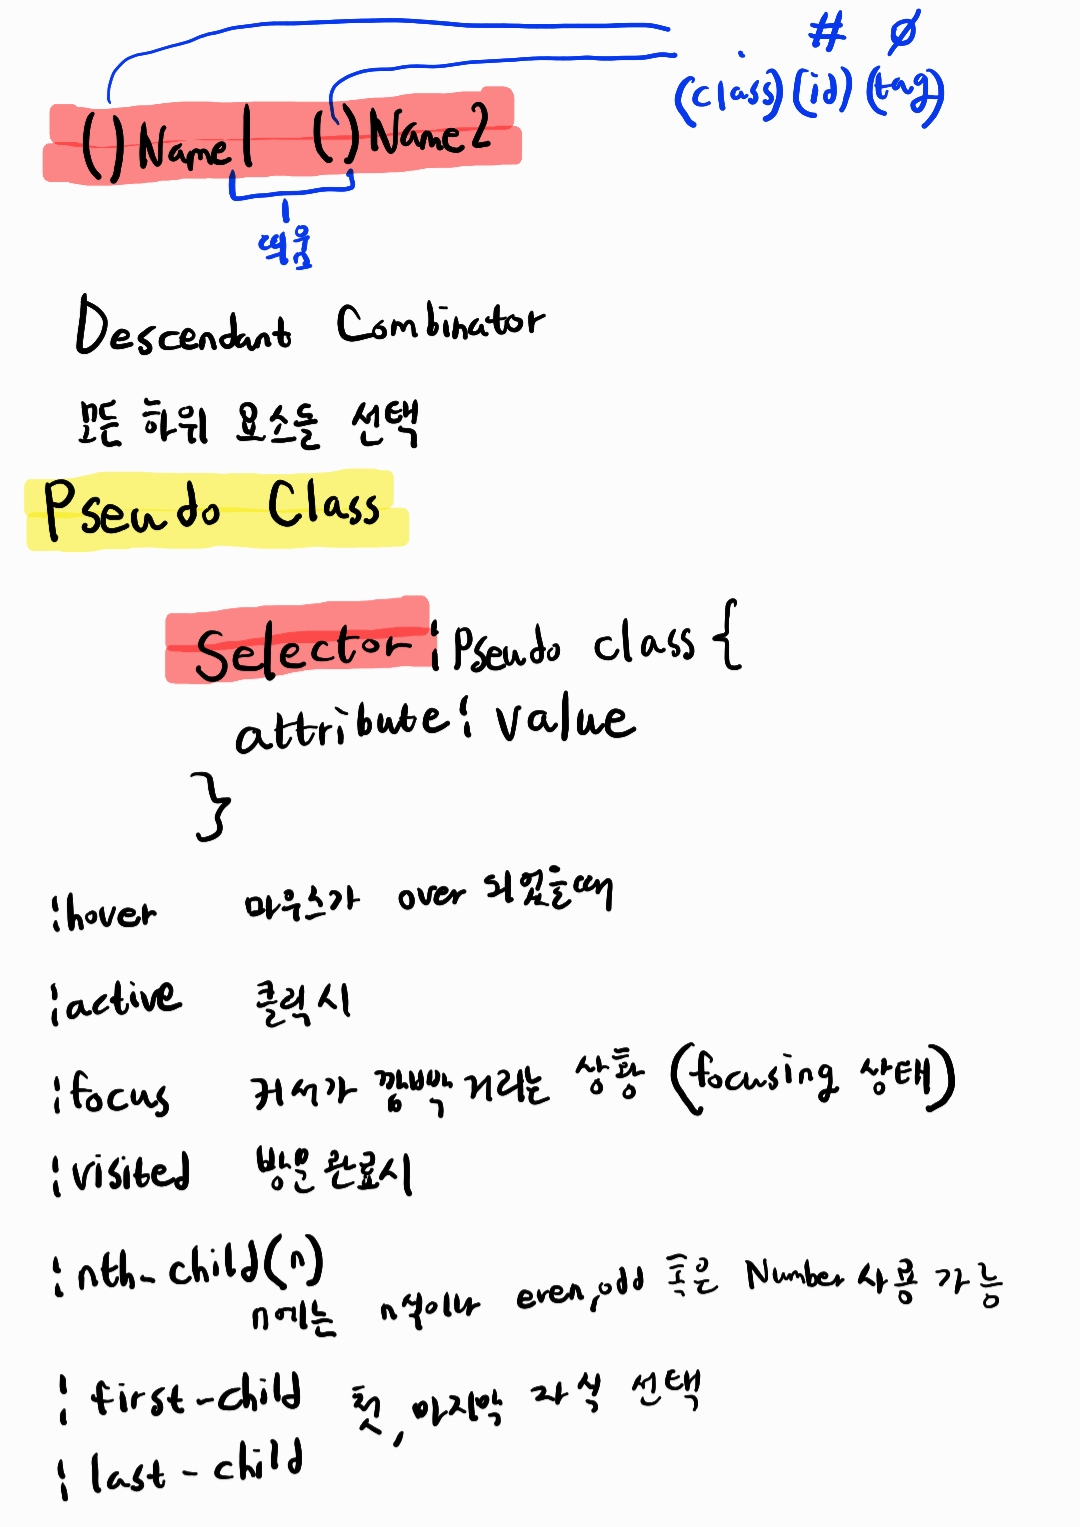 . # ∅
(class) (id) (tag)
()Name1 ()Name2
띄움
Descendant Combinator
모든 하위 요소들 선택
Pseudo Class
Selector:Pseudo class {
attribute: value
}
:hover 마우스가 over 되었을때
:active 클릭시
:focus 커서가 깜빡거리는 상황 (focusing 상태)
:visited 방문 완료시
:nth-child(n)
n에는 n식이나 even, odd 혹은 Number 사용 가능
: first-child 첫, 마지막 자식 선택
: last-child